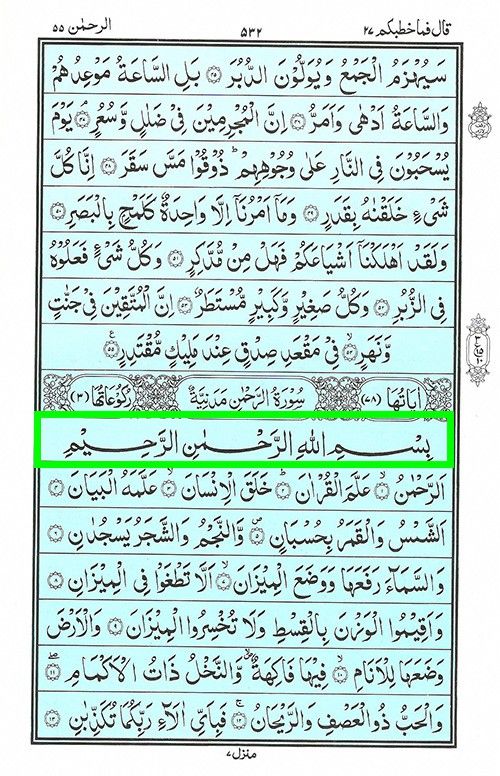 قال فما خطبكم ٢٧ ٥٣٢ الرحمٰن ٥٥
سَيُهْزَمُ الْجَمْعُ وَيُوَلُّوْنَ الدُّبُرَ ﴿٤٥﴾ بَلِ السَّاعَةُ مَوْعِدُهُمْ
وَالسَّاعَةُ اَدْهٰى وَاَمَرُّ ﴿٤٦﴾ اِنَّ الْمُجْرِمِيْنَ فِيْ ضَلٰلٍ وَّسُعُرٍ ﴿٤٧﴾ يَوْمَ
يُسْحَبُوْنَ فِى النَّارِ عَلٰى وُجُوْهِهِمْ ؕ ذُوْقُوْا مَسَّ سَقَرَ ﴿٤٨﴾ اِنَّا كُلَّ
شَىْءٍ خَلَقْنٰهُ بِقَدَرٍ ﴿٤٩﴾ وَمَاۤ اَمْرُنَاۤ اِلَّا وَاحِدَةٌ كَلَمْحٍۭ بِالْبَصَرِ ﴿٥٠﴾
وَلَقَدْ اَهْلَكْنَاۤ اَشْيَاعَكُمْ فَهَلْ مِنْ مُّدَّكِرٍ ﴿٥١﴾ وَكُلُّ شَىْءٍ فَعَلُوْهُ
فِى الزُّبُرِ ﴿٥٢﴾ وَكُلُّ صَغِيْرٍ وَّكَبِيْرٍ مُّسْتَطَرٌ ﴿٥٣﴾ اِنَّ الْمُتَّقِيْنَ فِيْ جَنّٰتٍ
وَّنَهَرٍ ﴿٥٤﴾ فِيْ مَقْعَدِ صِدْقٍ عِنْدَ مَلِيْكٍ مُّقْتَدِرٍ ﴿٥٥﴾
اٰيَاتُهَا (٧٨) سُوْرَةُ الرَّحْمٰنِ مَدَنِيَّةٌ رُكُوْعَاتُهَا (٣)
بِسْمِ اللهِ الرَّحْمٰنِ الرَّحِيْمِ
اَلرَّحْمٰنُ ﴿١﴾ عَلَّمَ الْقُرْاٰنَ ﴿٢﴾ خَلَقَ الْاِنْسَانَ ﴿٣﴾ عَلَّمَهُ الْبَيَانَ ﴿٤﴾
اَلشَّمْسُ وَالْقَمَرُ بِحُسْبَانٍ ﴿٥﴾ وَّالنَّجْمُ وَالشَّجَرُ يَسْجُدٰنِ ﴿٦﴾
وَالسَّمَآءَ رَفَعَهَا وَوَضَعَ الْمِيْزَانَ ﴿٧﴾ اَلَّا تَطْغَوْا فِى الْمِيْزَانِ ﴿٨﴾
وَاَقِيْمُوا الْوَزْنَ بِالْقِسْطِ وَلَا تُخْسِرُوا الْمِيْزَانَ ﴿٩﴾ وَالْاَرْضَ
وَضَعَهَا لِلْاَنَامِ ﴿١٠﴾ فِيْهَا فَاكِهَةٌ وَّالنَّخْلُ ذَاتُ الْاَكْمَامِ ﴿١١﴾
وَالْحَبُّ ذُو الْعَصْفِ وَالرَّيْحَانُ ﴿١٢﴾ فَبِاَىِّ اٰلَآءِ رَبِّكُمَا تُكَذِّبٰنِ ﴿١٣﴾
منزل ٧